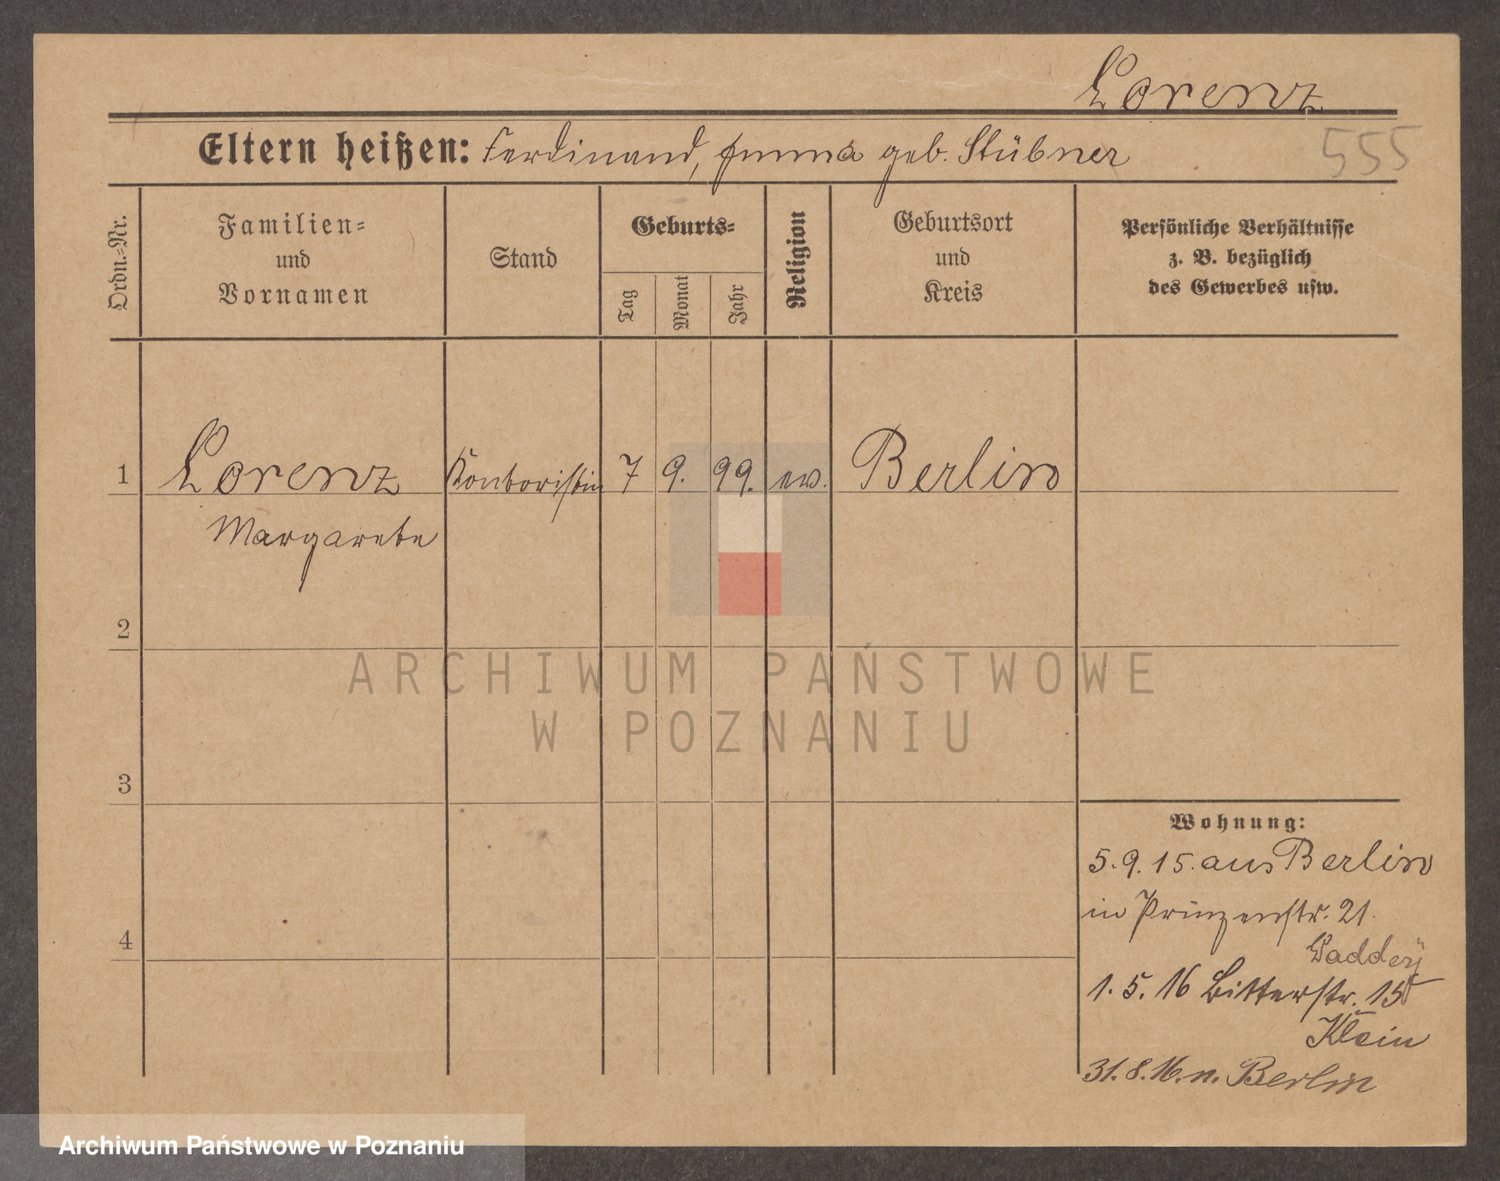 Lorenz
Eltern heißen: Ferdinand, Emma geb. Stübner
555
Ordn.-Nr.
Familien-
und
Vornamen
Stand
Geburts-
Tag
Monat
Jahr
Religion
Geburtsort
und
Kreis
Persönliche Verhältnisse
z. B. bezüglich
des Gewerbes usw.
1 Lorenz Kontoristin 7 9. 99. ev. Berlin
Margarete
2
ARCHIWUM PAŃSTWOWE
W POZNANIU
3
Wohnung:
5.9.15. aus Berlin
in Prinzenstr. 21.
4
1.5.16 Bitterstr. 15
Klein
31.8.16. n. Berlin
Archiwum Państwowe w Poznaniu